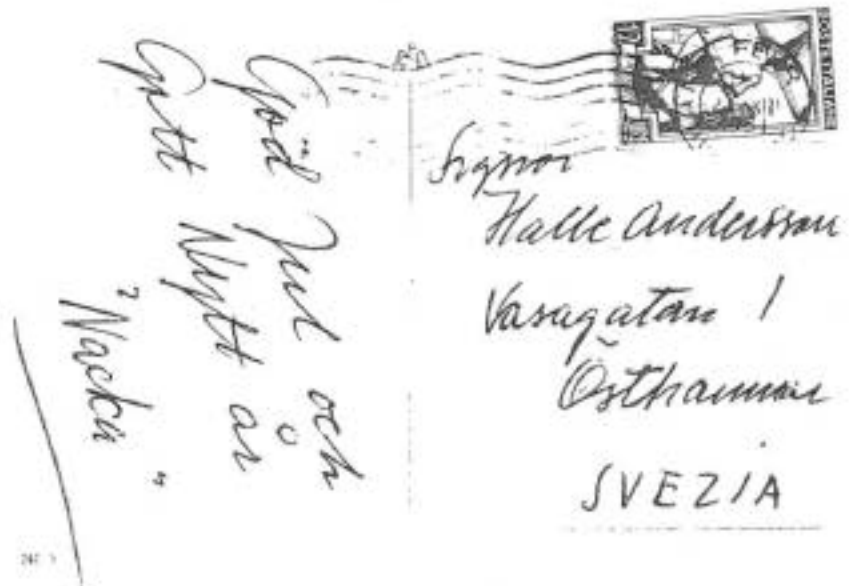 God Jul och
Gott Nytt år
"Nacka"
Signor
Halle Andersson
Vasagatan 1
Östhammar
SVEZIA